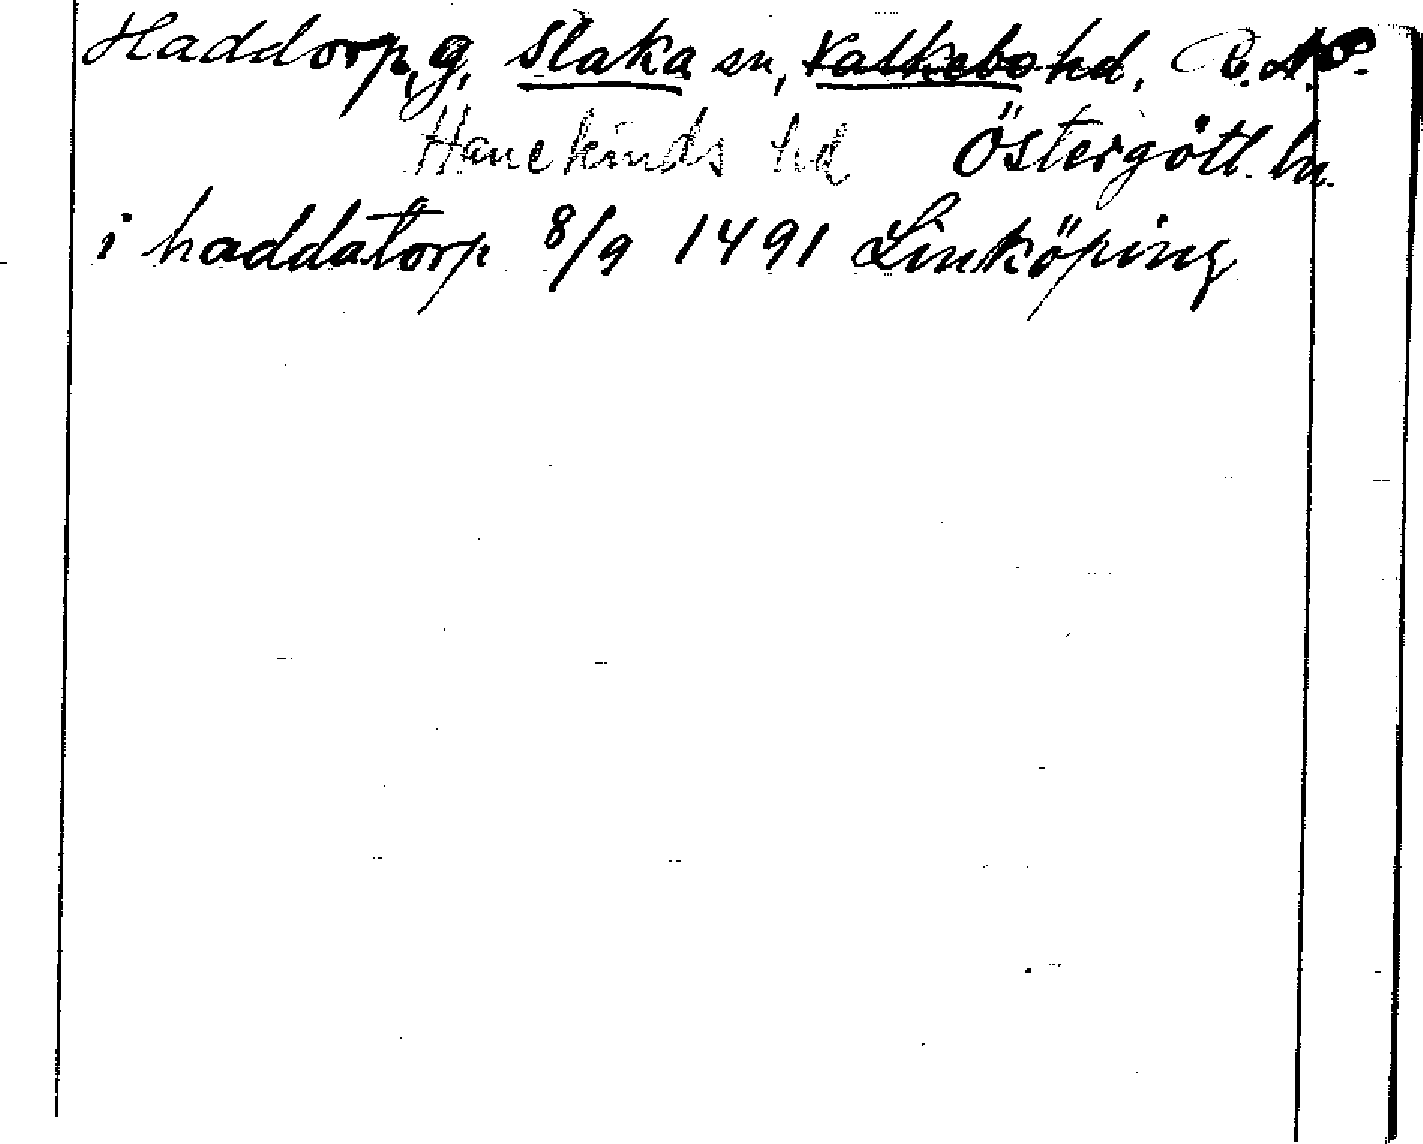 Haddorp, g, Slaka sn, Valkebo hd.
Hanekinds hd Östergötl. ln.
i haddatorp 8/9 1491 Linköping